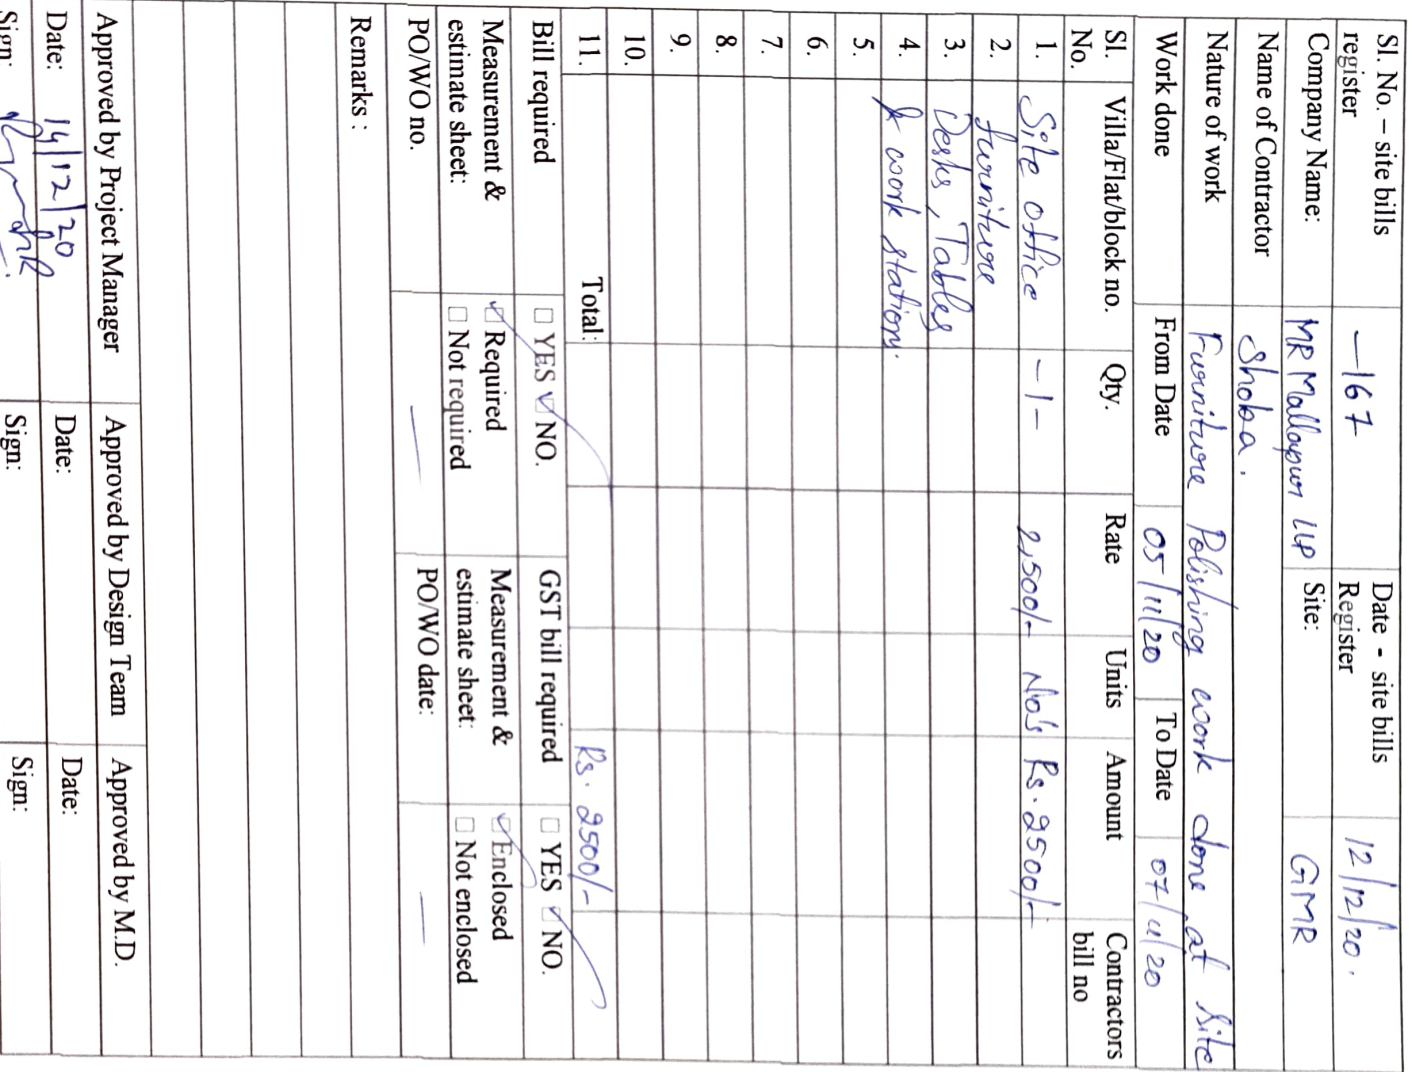 Sl. No. – site bills register –167 Date - site bills Register 12/12/20.
Company Name: MR Mallapur LLP Site: GMR
Name of Contractor Shoba.
Nature of work Furniture Polishing work done at Site
Work done From Date 05/11/20 To Date 07/11/20
Sl. No. Villa/Flat/block no. Qty. Rate Units Amount Contractors bill no
1. Site office –1– 2,500/- No's Rs.2500/-
2. furniture
3. Desks, Tables
4. & work station.
5.
6.
7.
8.
9.
10.
11. Total: Rs. 2500/-
Bill required ☐ YES ☑ NO. GST bill required ☐ YES ☑ NO.
Measurement & estimate sheet: ☑ Required ☐ Not required Measurement & estimate sheet: ☑ Enclosed ☐ Not enclosed
PO/WO no. — PO/WO date: —
Remarks :
Approved by Project Manager Approved by Design Team Approved by M.D.
Date: 14/12/20 Date: Date:
Sign: Sign: Sign: